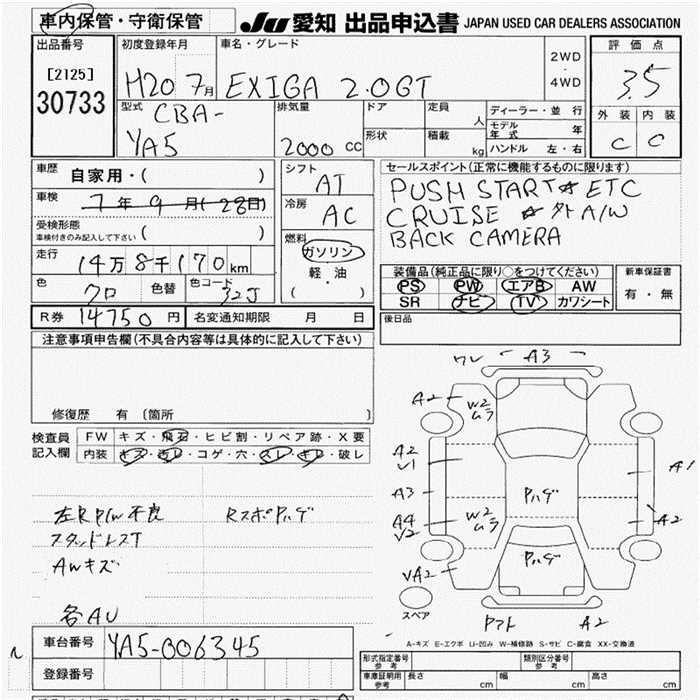 車内保管・守衛保管
JU 愛知 出品申込書 JAPAN USED CAR DEALERS ASSOCIATION
出品番号 初度登録年月 車名・グレード 2WD ・ 4WD 評価点
[2125]
30733 H20 7月 EXIGA 2.0GT 3.5
型式 排気量 ドア 定員 人 ディーラー・並行 外装 内装
CBA-
YA5 2000 CC 形状 積載 kg モデル年式 年 C C
ハンドル 左・右
車歴 自家用・( ) シフト AT セールスポイント(正常に機能するものに限ります)
車検 7年9月(28日) 冷房 AC PUSH START☆ETC
受検形態 CRUISE ☆外A/W
車検付きのみ記入して下さい ( ) 燃料 ガソリン BACK CAMERA
走行 14万8千170km 軽・油 装備品(純正品に限り○をつけてください) 新車保証書
色 クロ 色替 色コード 32J ( ) PS PW エアB AW 有・無
SR ナビ TV カワシート
R券 14750円 名変通知期限 月 日 後日品
注意事項申告欄(不具合内容等は具体的に記入して下さい)
修復歴 有 [箇所 ]
検査員記入欄 FW キズ・飛石・ヒビ割・リペア跡・X要
内装 キズ・汚レ・コゲ・穴・スレ・キレ・破レ
左R P/W不良 RスポPハゲ
スタッドレスT
AWキズ
各AU
ワレ A3
A2 W2ムラ
A2
V1 A1
A3 Pハゲ
A4
V2 W2ムラ A2
Pハゲ
VA2
スペア A2
A-キズ E-エクボ U-凹み W-補修跡 S-サビ C-腐食 XX-交換済
車台番号 YA5-006345
登録番号
形式指定番号 参考 類別区分番号 参考
車庫証明用 参考 長さ cm 幅 cm 高さ cm